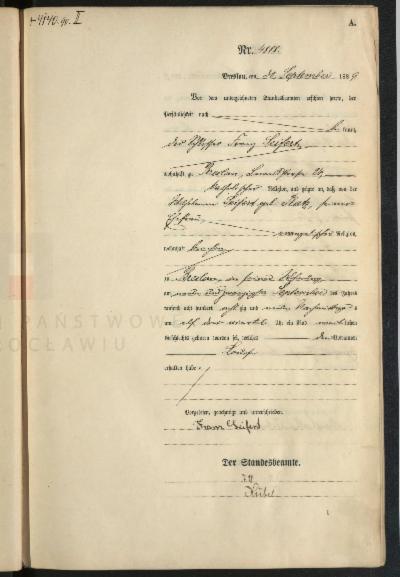 +4140. 90. II
A.
Nr. 4118.
Breslau, am 30 September 1889
Vor dem unterzeichneten Standesbeamten erschien heute, der
Persönlichkeit nach
kannt,
der Schlosser Franz Seifert,
wohnhaft zu Breslau,
katholischer Religion, und zeigte an, daß von der
Seifert geb.
Ehefrau,
evangelischer Religion,
wohnhaft bei ihm
zu Breslau, in seiner Wohnung
am neun und zwanzigsten September des Jahres
tausend acht hundert acht zig und neun Nachmittags
um elf drei viertel Uhr ein Kind männlichen
Geschlechts geboren worden sei, welches den Vornamen
erhalten habe.
Vorgelesen, genehmigt und unterschrieben.
Franz Seifert
Der Standesbeamte.
I.V.
PAŃSTWOW
ROCŁAWIU